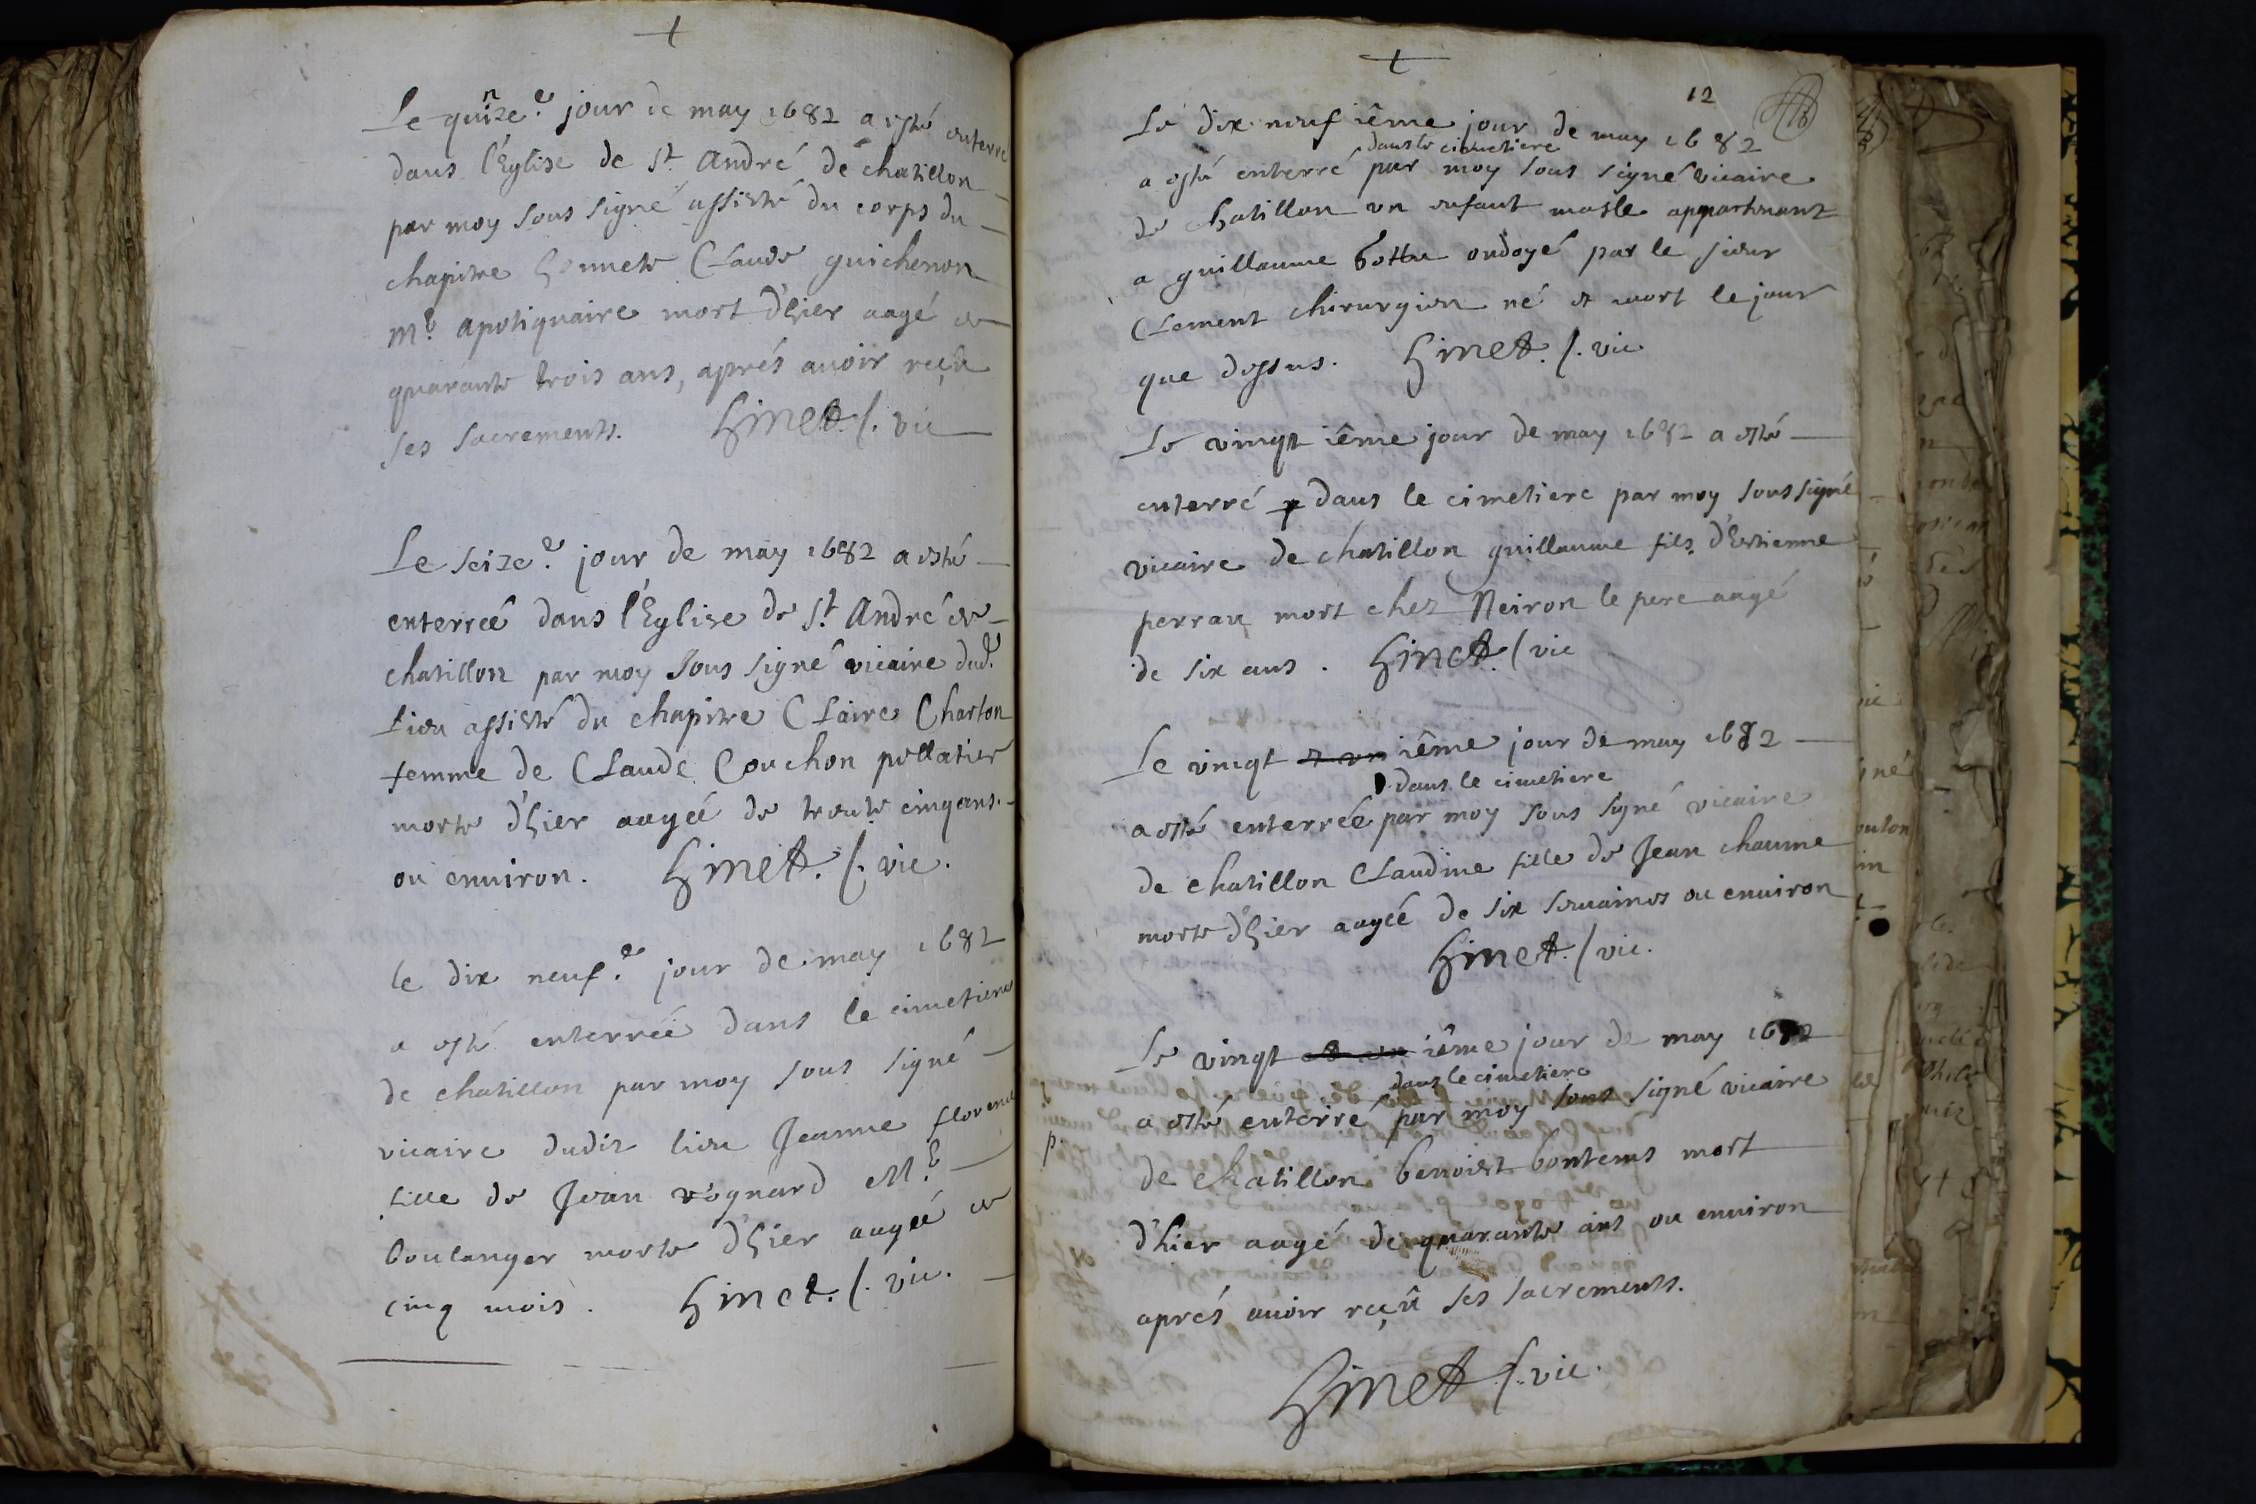 Le quinze.e jour de may 1682 a esté enterré
dans l'Église de St André de chatillon
par moy sous signé assisté du corps du
chapitre honneste Claude guichenon
Me. apotiquaire mort d'hier aagé de
quarante trois ans, aprés auoir reçu
ses sacrements. hinet /. vic
Le seize.e jour de may 1682 a esté
enterreé dans l'Église de St. André de
chatillon par moy sous signé vicaire dud.
lieu assisté du chapitre Claire Charton
femme de Claude Couchon pellatier
morte d'hier aageé de trente cinq ans.
ou enuiron. hinet. /. vic.
le dix neuf.e jour de may 1682
a esté enterreé dans le cimetiere
de chatillon par moy sous signé
vicaire dudit lieu Jeanne florence
fille de Jean rognard Me.
boulanger morte d'hier aageé de
cinq mois. hinet. /. vic.
12
Le dix neuf iême jour de may 1682
dans le cimetiere
a esté enterré par moy sous signé vicaire
de chatillon vn enfant masle appartenant
a guillaume bottu ondoyé par le sieur
Clement chirurgien né et mort le jour
que dessus. hinet. /. vic
Le vingt iême jour de may 1682 a esté
enterré p dans le cimetiere par moy sous signé
vicaire de chatillon guillaume fils d'Estienne
perrau mort chez Neiron le pere aagé
de six ans. hinet. / vic
Le vingt et un iême jour de may 1682
dans le cimetiere
a esté enterreé par moy sous signé vicaire
de chatillon Claudine fille de Jean chaume
morte d'hier aageé de six semaines ou enuiron
hinet. / vic.
Le vingt et un iême jour de may 1682
dans le cimetiere
a esté enterré par moy sous signé vicaire
de chatillon benoist bontems mort
d'hier aagé de quarante ans ou enuiron
aprés auoir reçû ses sacrements.
hinet /. vic.